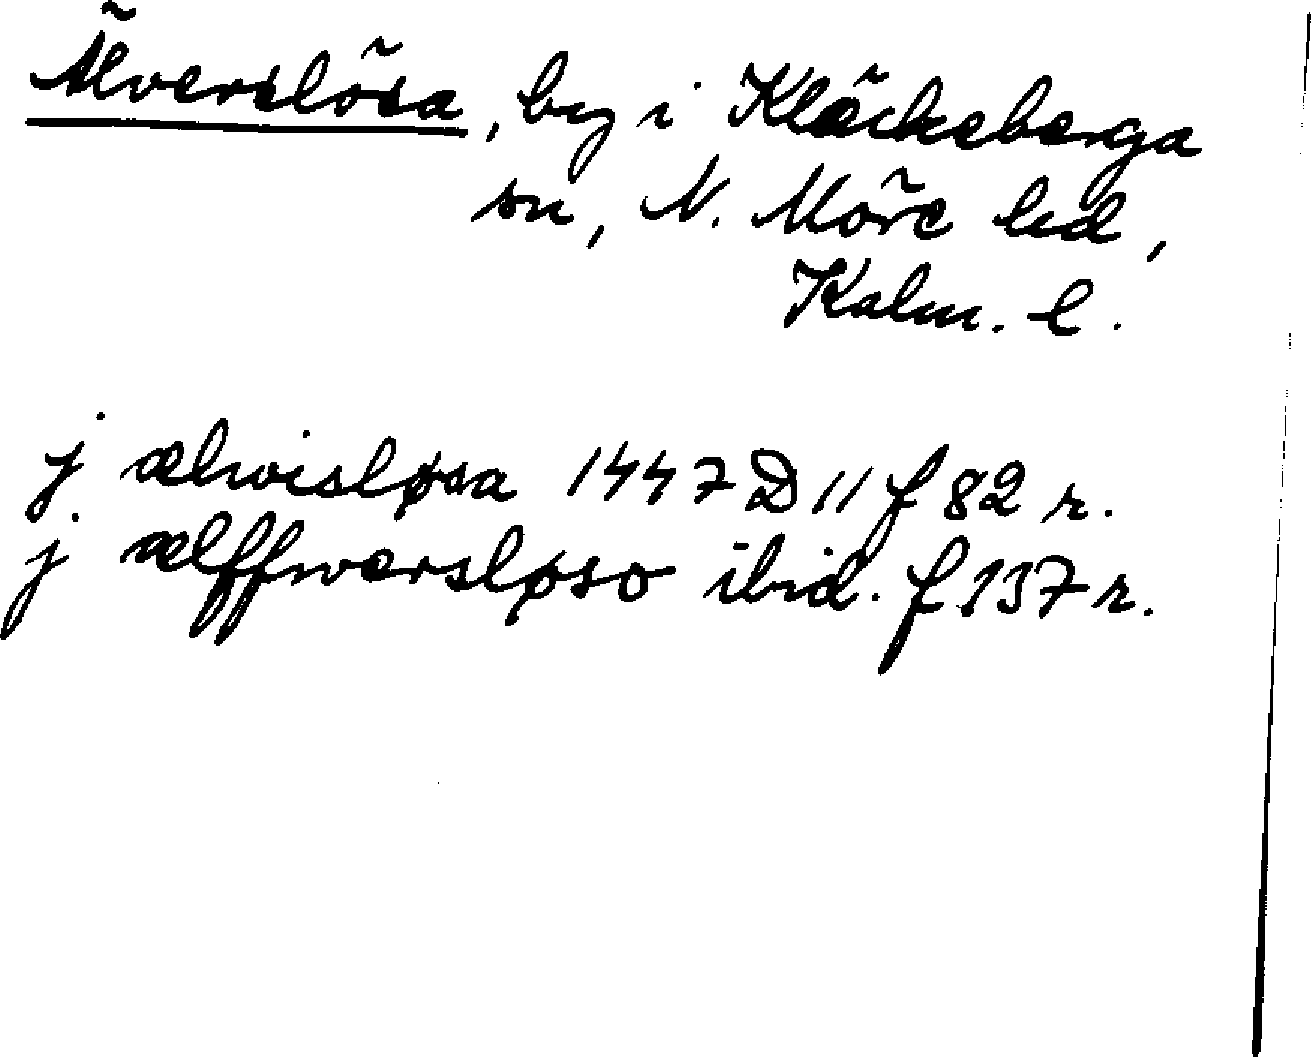 Älverslösa, by i Kläckeberga
sn, N. Möre hd,
Kalm. l.
j ælwisløsa 1447 D 11 f 82 r.
j ælffwersløso ibid. f 137 r.